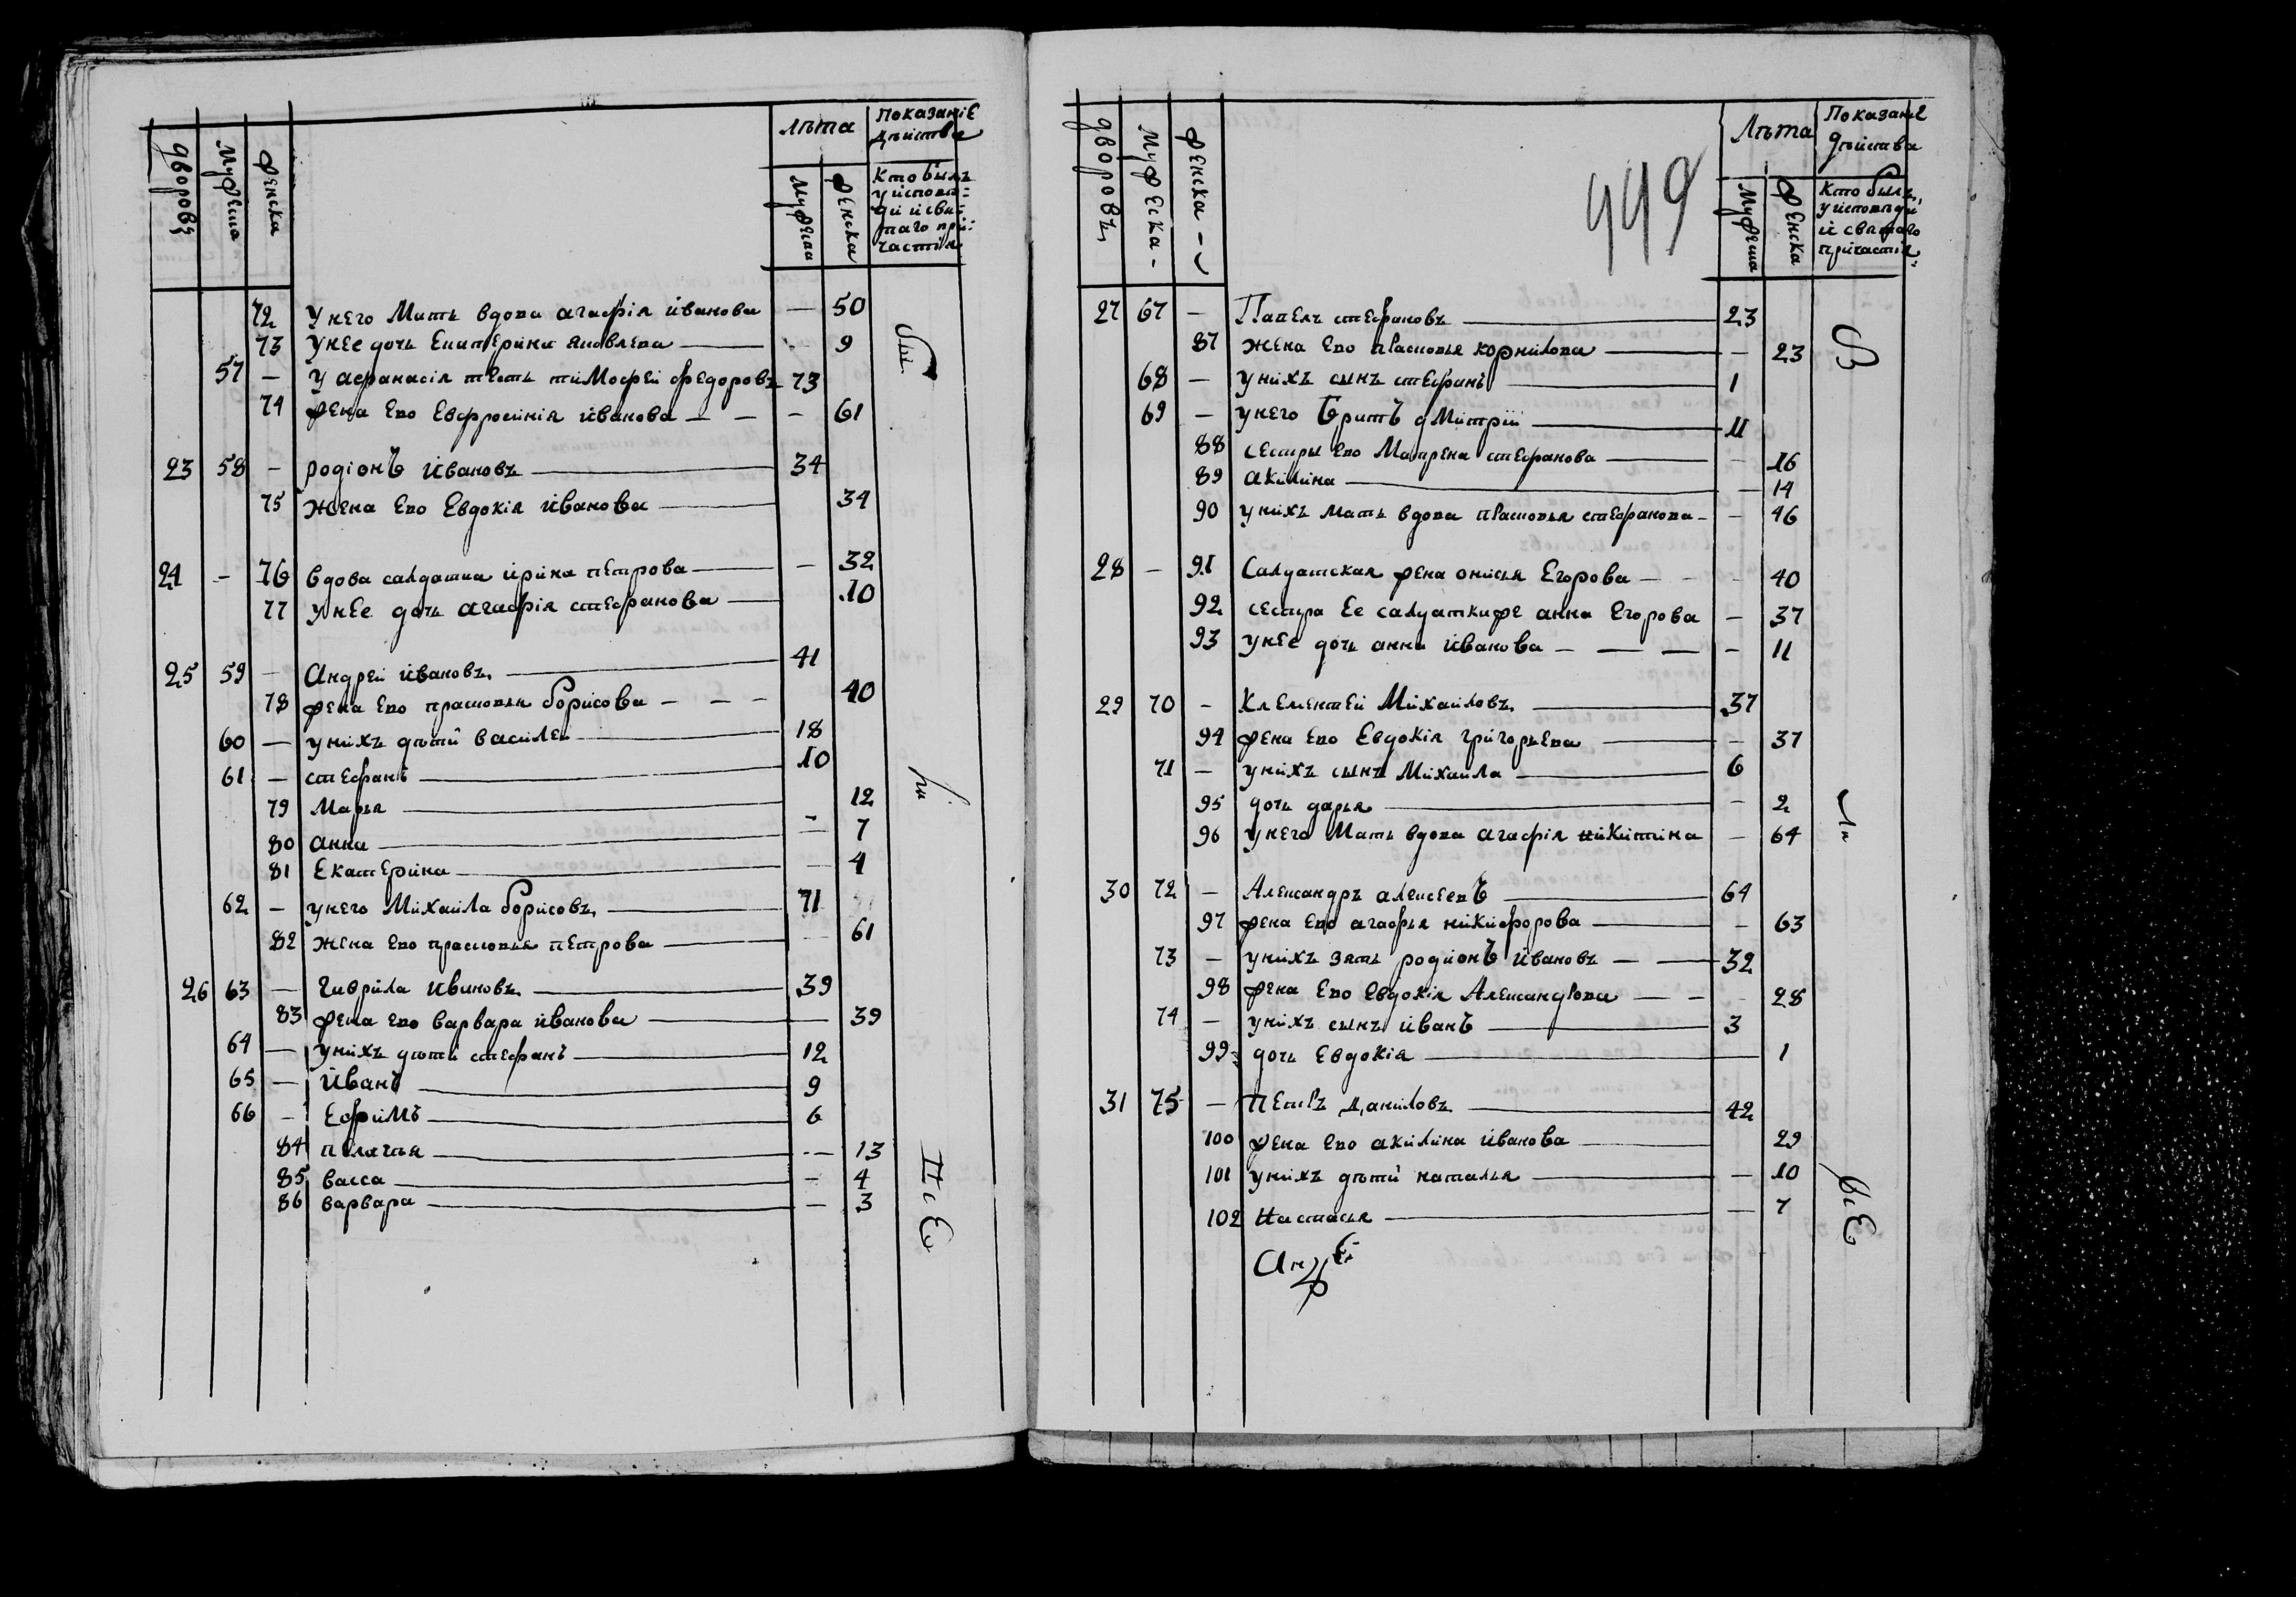 дворовъ
мужеска
женска
лѣта
мужеска
женска
Показаніе
дѣйства
Кто былъ
у исповѣ=
ди и свя=
таго при=
частія
72 У него Мать вдова агафія иванова — 50
73 У нее дочь Екатерина яковлева — 9
57 — У афанасія тесть тиМофей федоровъ 73
74 жена Его Евфросинія иванова — 61
23 58 — родіонъ ивановъ 34
75 жена Его Евдокія иванова 34
24 — 76 вдова салдатка ирина петрова — 32
77 У нее дочь агафія стефанова 10
25 59 — Андрей ивановъ 41
78 жена Его прасковья борисова 40
60 — у нихъ дѣти василей 18
61 — стефанъ 10
79 Марья 12
80 анна — 7
81 Екатерина — 4
62 — у него Михайла борисовъ 71
82 жена Его прасковья петрова — 61
26 63 — гаврила ивановъ 39
83 жена Его варвара иванова — 39
64 — у нихъ дѣти стефанъ 12
65 — иванъ 9
66 — Ефимъ 6
84 пелагея — 13
85 васса — 4
86 варвара — 3
бы
ли
всѣ
дворовъ
мужеска
женска
449
Лѣта
мужеска
женска
Показание
дѣйства
Кто былъ
у исповѣди
и святаго
причастія
27 67 — Павелъ стефановъ 23
87 жена Его прасковья корнилова — 23
68 — у нихъ сынъ стефанъ 1
69 — у него братъ дМитрій 11
88 сестры Его Матрена стефанова — 16
89 акилина — 14
90 у нихъ мать вдова прасковья стефанова — 46
28 — 91 Салдатская жена онисья Егорова — 40
92 сестра Ее салдаткаже анна Егорова — 37
93 у нее дочь анна иванова — 11
29 70 — Клементей Михайловъ 37
94 жена Его Евдокія григорьева — 37
71 — у нихъ сынъ Михайла 6
95 дочь дарья — 2
96 у него Мать вдова агафія никитина — 64
30 72 — Александръ алексеевъ 64
97 жена Его агафья никифорова — 63
73 — у нихъ зять родионъ ивановъ 32
98 жена Его Евдокія Александрова — 28
74 — у нихъ сынъ иванъ 3
99 дочь Евдокія 1
31 75 — петръ даниловъ 42
100 жена Его акилина иванова 29
101 у нихъ дѣти наталья — 10
102 настасья — 7
Андрей